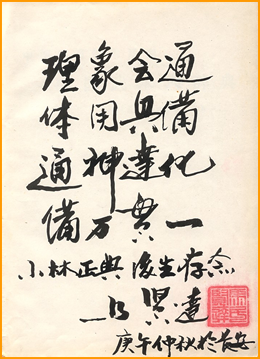 理象会通
体用具備
通神達化
備万貫一
小林正典後生存念
马贤達
庚午仲秋於長安